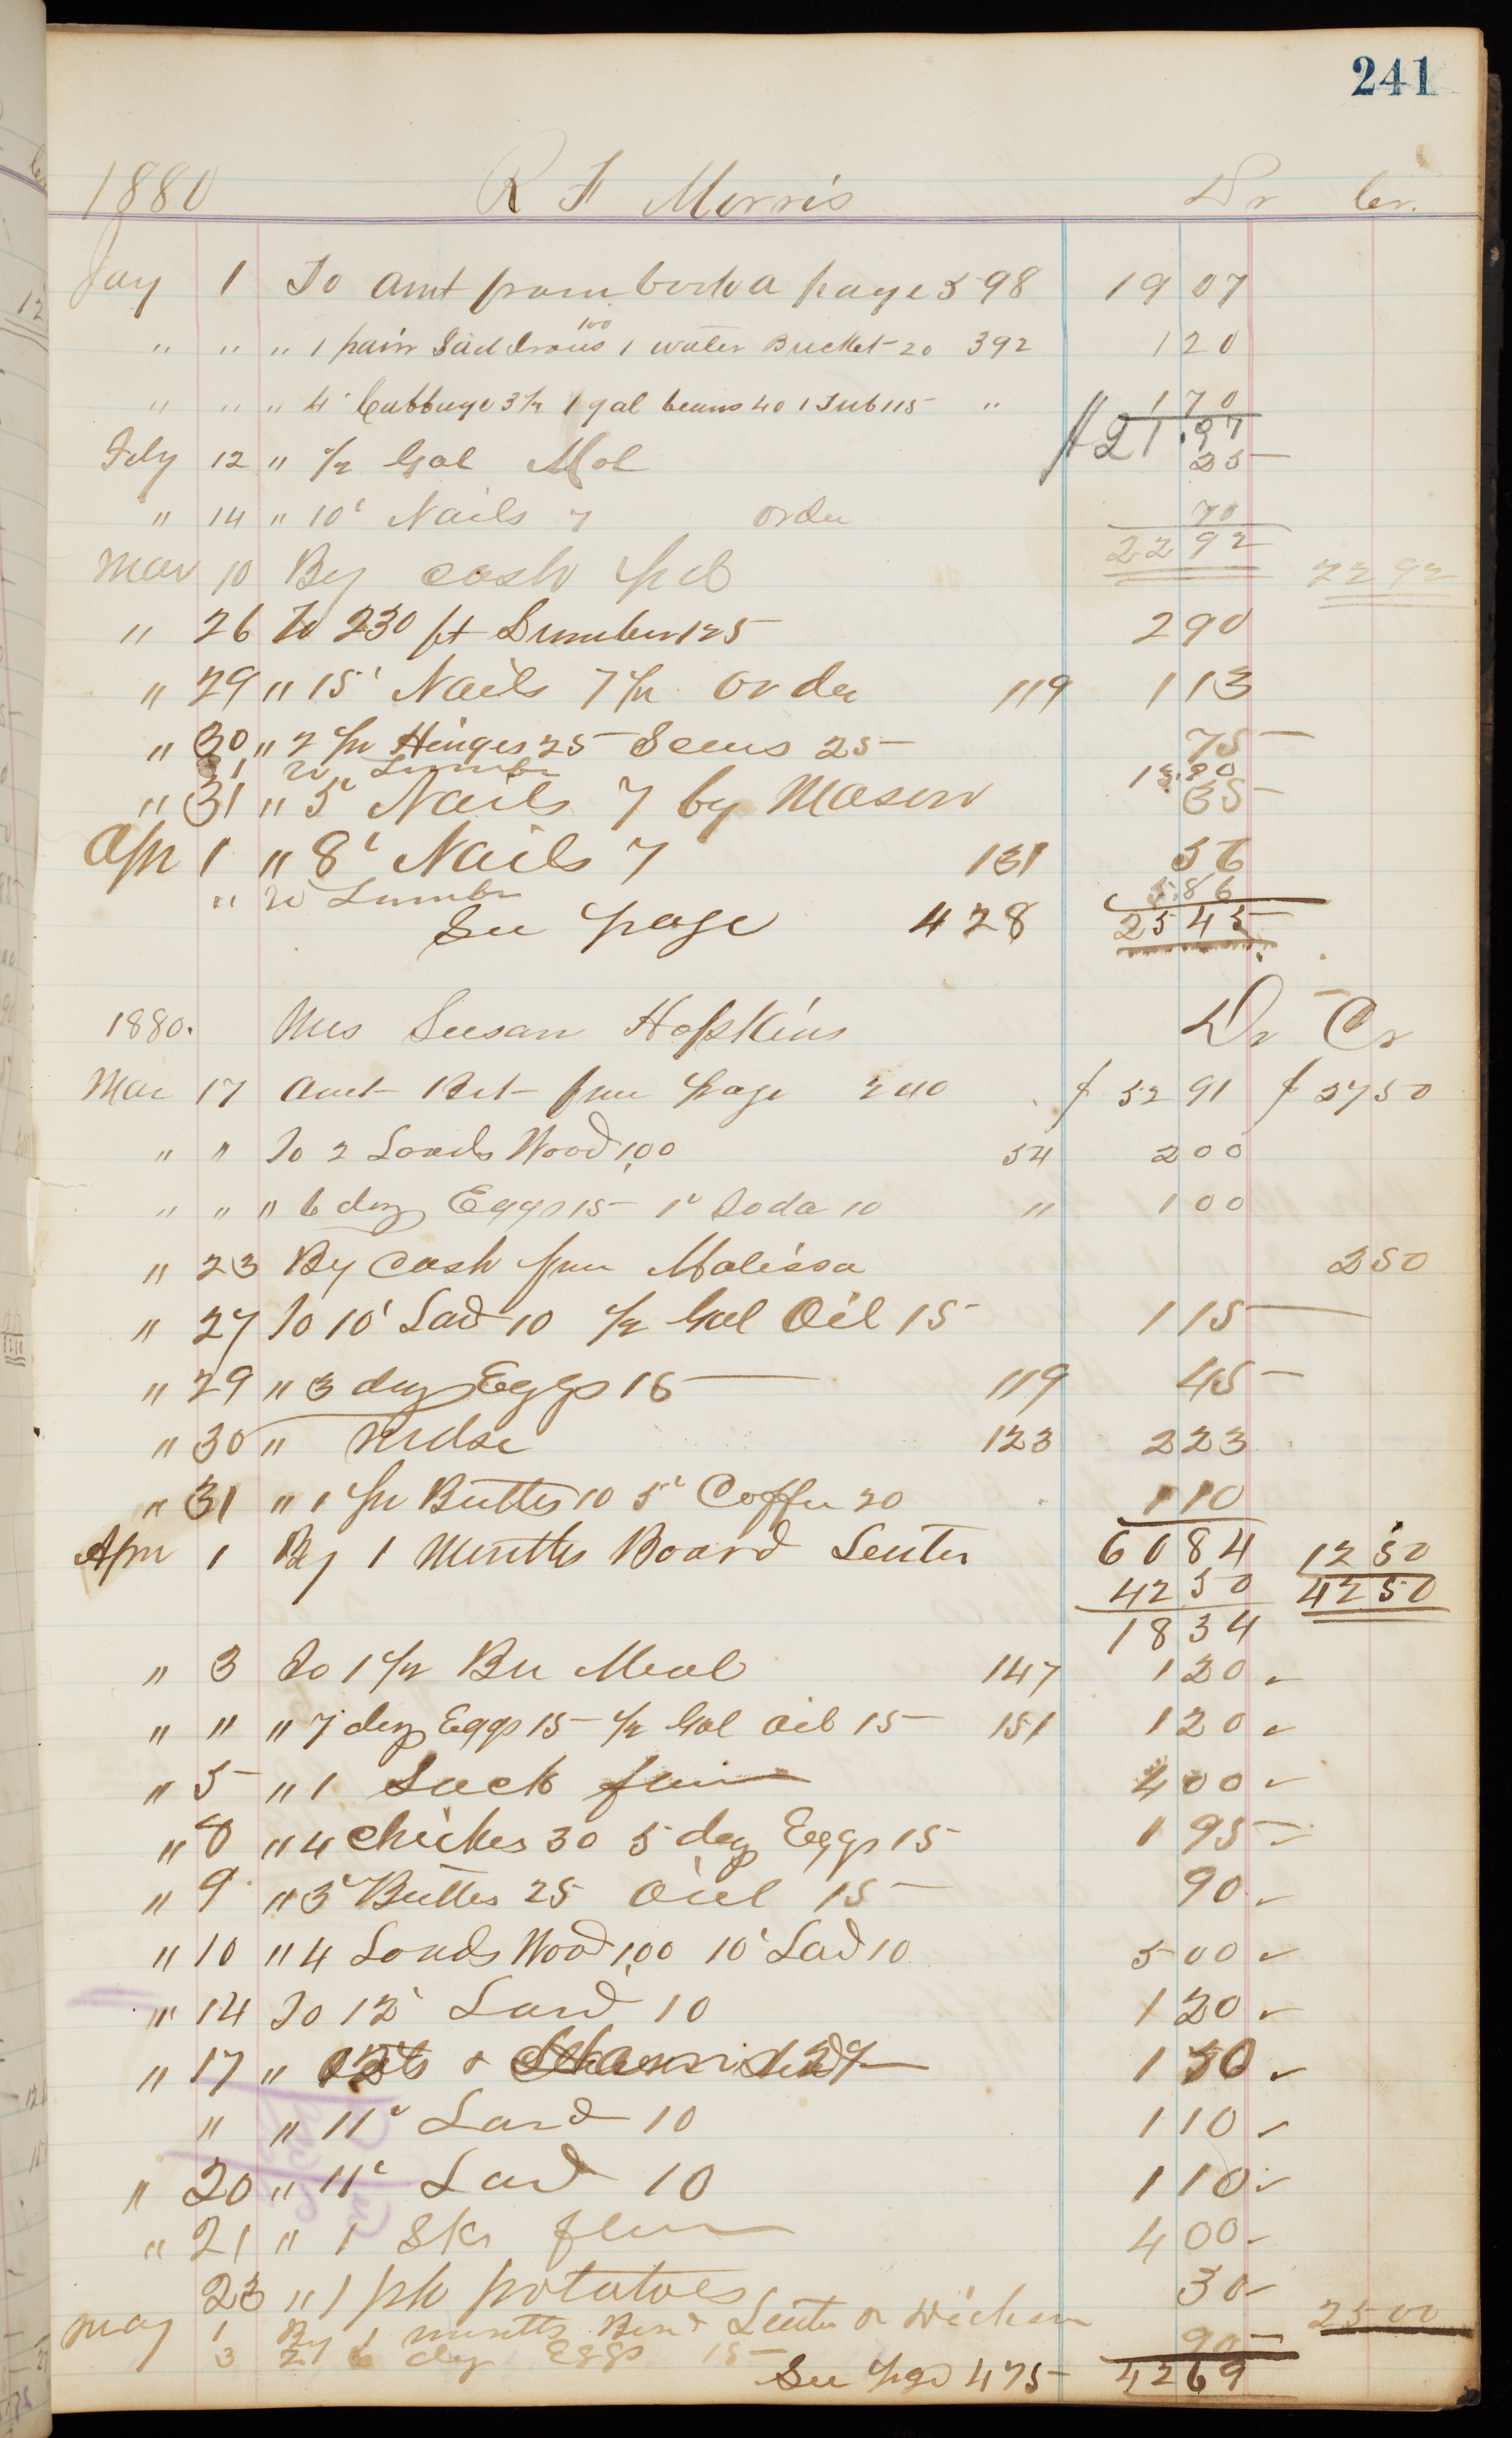 241
1880 R F Morris Dr Cr.
Jay 1 To amt from book a page 598 19 07
" " " 1 pair Sad Irons 100 1 water Bucket 20 392 1 20
" " " 4' Cabbage 3½ 1 gal beans 40 1 Tub 115 " 1 70
$21.97
Feby 12 " ½ Gal Mol 25
" 14 " 10' Nails 7 order 70
22 92
Mar 10 By cash pd 22 92
" 26 To 230 ft Lumber 125 2 90
" 29 " 15' Nails 7½ order 119 1 13
" 30 " 2 pr Hinges 25 Screws 25 75
31 " Lumbr 13.90
" 31 " 5' Nails 7 by Mason 35
Apr 1 " 8' Nails 7 131 56
" " Lumbr 5.86
See page 428 25 45
1880. Mrs Susan Hopkins Dr Cr
Mar 17 Amt Brt from page 240 $ 52 91 $ 27 50
" " To 2 Loads Wood 1,00 54 2 00
" " " 6 doz Eggs 15 1' Soda 10 " 1 00
" 23 By Cash from Malissa 2 50
" 27 To 10' Lad 10 ½ Gal Oil 15 1 15
" 29 " 3 doz Eggs 15 119 45
" 30 " Mdse 123 2 23
" 31 " 1 pr Butts 10 5' Coffee 20 1 10
Apr 1 By 1 Months Board Senter 60 84 12 50
42 50 42 50
18 34
" 3 To 1½ Bu Meal 147 1 20
" " " 7 doz Eggs 15 ½ Gal Oil 15 151 1 20
" 5 " 1 Sack flour 4 00
" 8 " 4 Chickes 30 5 doz Eggs 15 1 95
" 9 " 3' Butter 25 Oil 15 90
" 10 " 4 Loads Wood 1,00 10' Lad 10 5 00
" 14 To 12' Lard 10 1 20
" 17 " 1 50
" " 11' Lard 10 1 10
" 20 " 11' Lard 10 1 10
" 21 " 1 Sk flour 4 00
23 " 1 pk potatoes 30
May 1 By 1 months Bord Senter & Dickson 25 00
3 To 6 doz Eggs 15 90
See pge 475 42 69